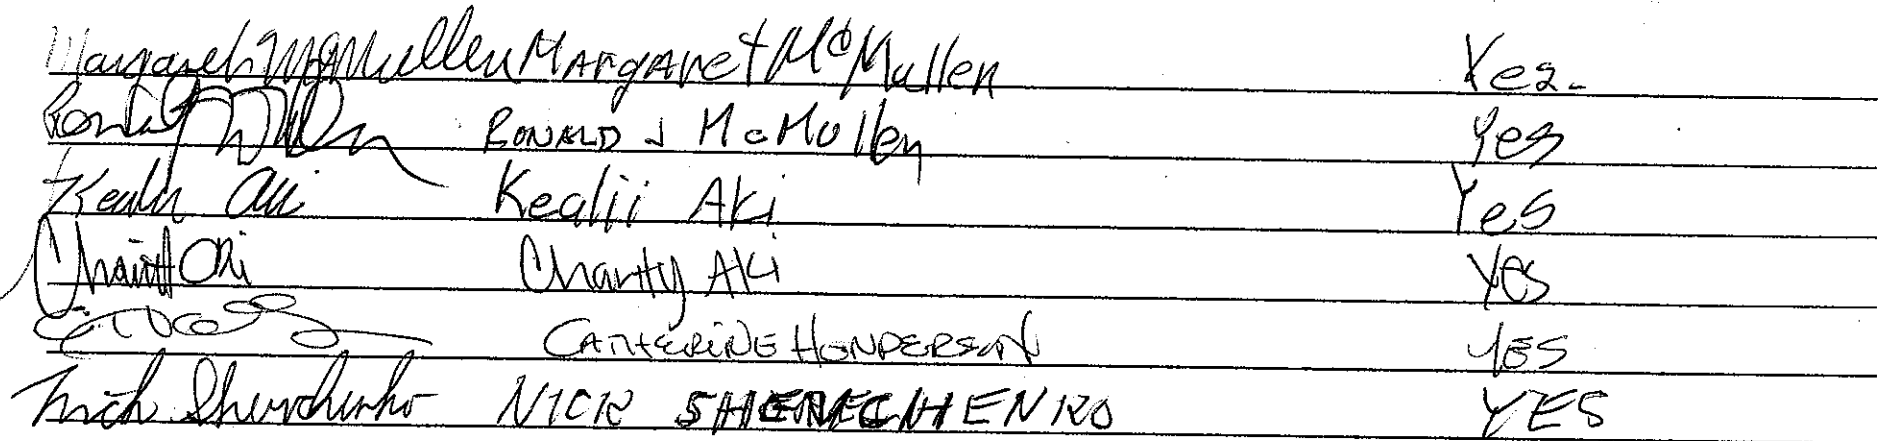 Margaret McMullen Margaret McMullen Yes.
Ronald J McMullen Yes
Kealii Aki Kealii Aki Yes
Charity Aki Charity Aki Yes
CATHERINE HENDERSON YES
Nick Shevchenko NICK SHEVCHENKO YES